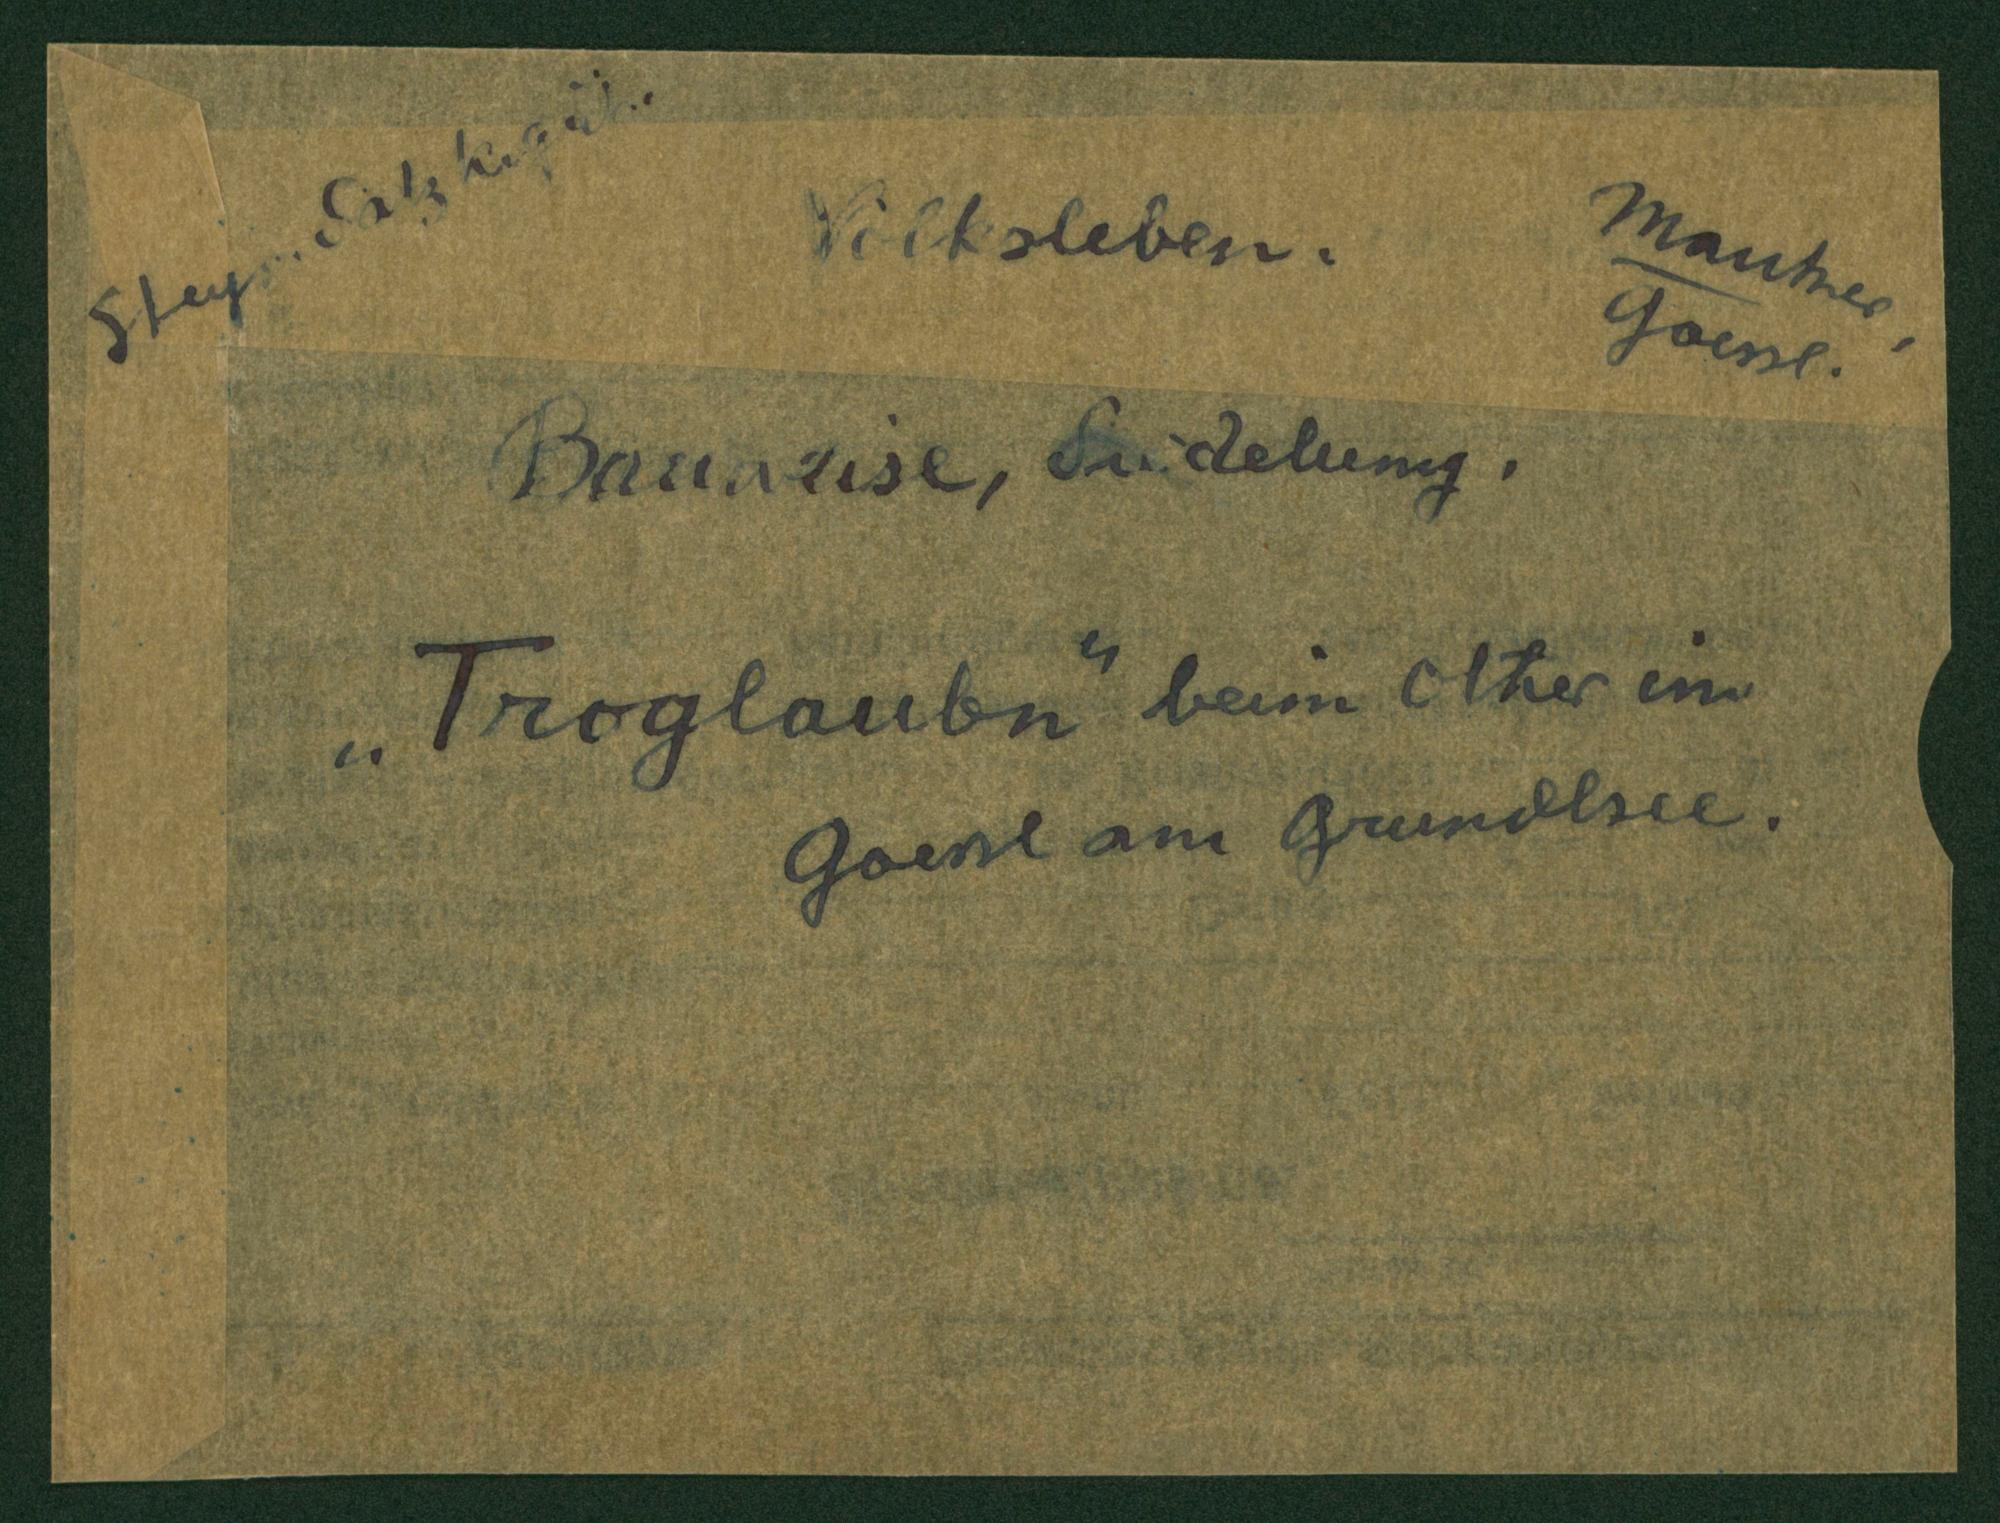 Steyr. Salzkgut.
Volksleben.
Mautner,
Goessl.
Bauweise, Siedelung.
„Troglaubn" beim Olther im
Goessl am Grundlsee.